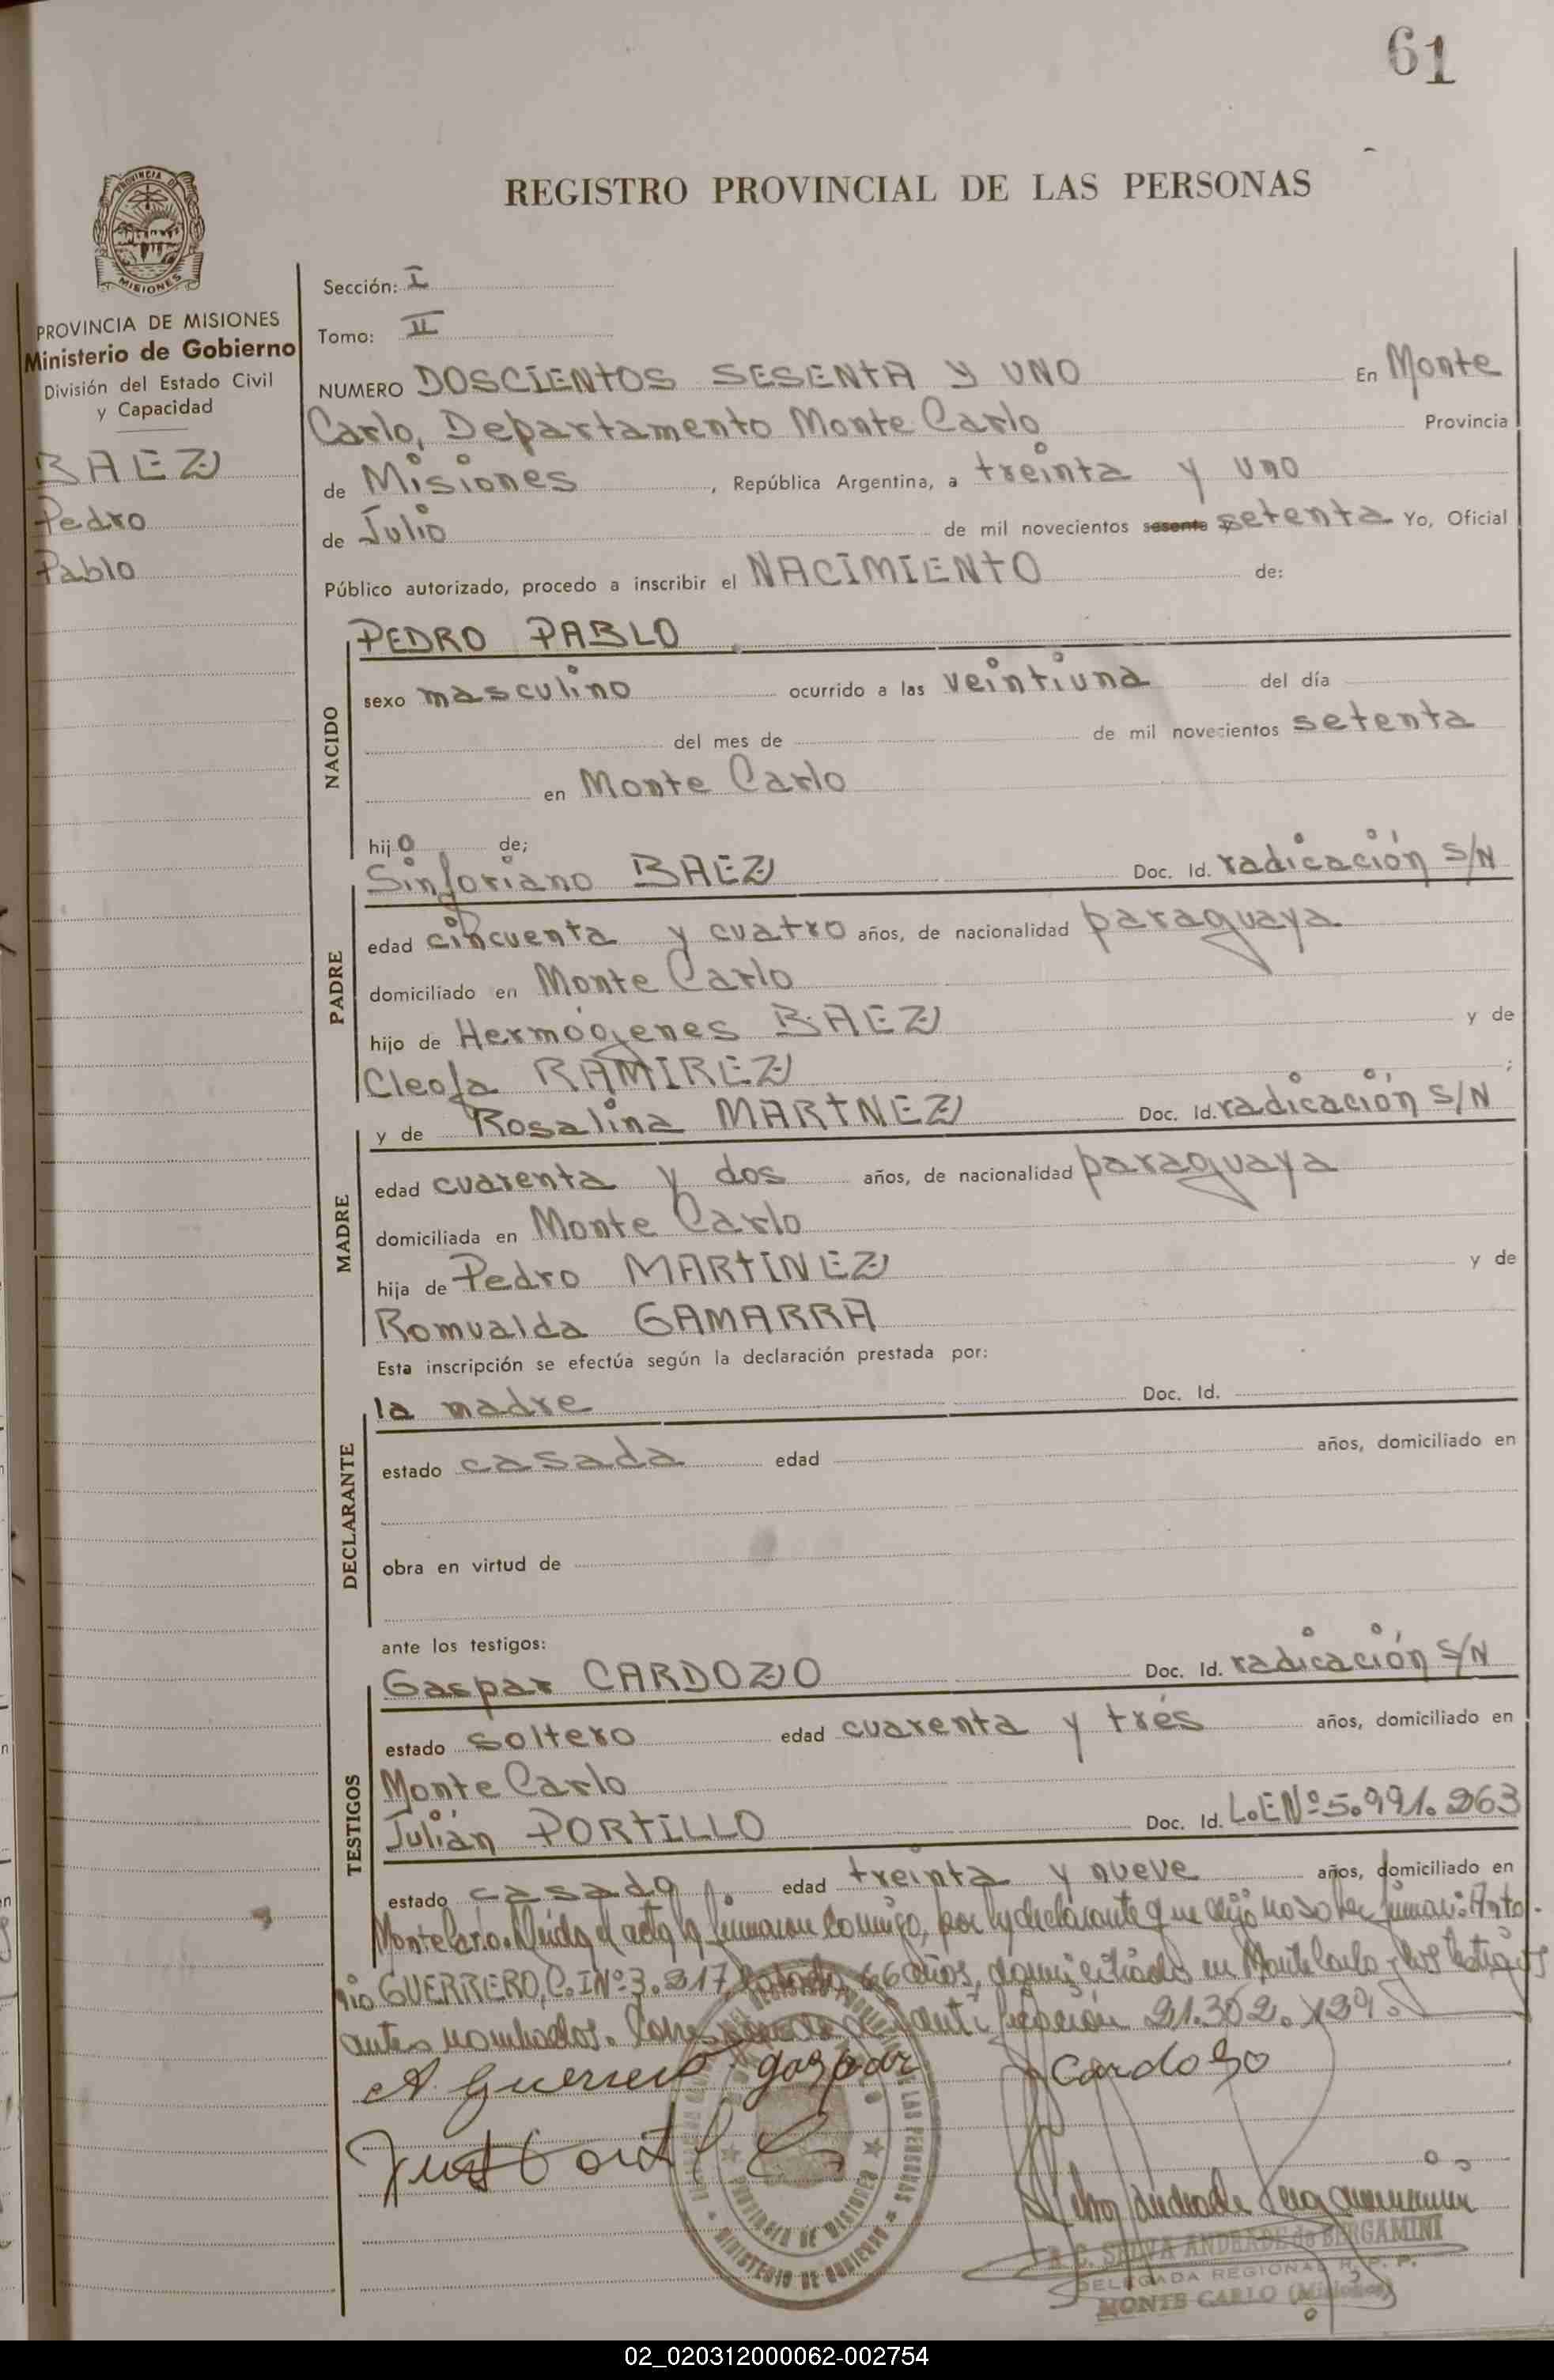 61
REGISTRO PROVINCIAL DE LAS PERSONAS
PROVINCIA DE MISIONES
Ministerio de Gobierno
División del Estado Civil
y Capacidad
BAEZ
Pedro
Pablo
Sección: I
Tomo: II
NUMERO DOSCIENTOS SESENTA Y UNO En Monte
Carlo, Departamento Monte Carlo Provincia
de Misiones, República Argentina, a treinta y uno
de Julio de mil novecientos sesenta setenta Yo, Oficial
Público autorizado, procedo a inscribir el NACIMIENTO de:
NACIDO
PEDRO PABLO
sexo masculino ocurrido a las veintiuna del día
del mes de de mil novecientos setenta
en Monte Carlo
hijo de;
PADRE
Sinforiano BAEZ Doc. Id. radicación S/N
edad cincuenta y cuatro años, de nacionalidad paraguaya
domiciliado en Monte Carlo
hijo de Hermógenes BAEZ y de
Cleofa RAMIREZ ;
MADRE
y de Rosalina MARTNEZ Doc. Id. radicación S/N
edad cuarenta y dos años, de nacionalidad paraguaya
domiciliada en Monte Carlo
hija de Pedro MARTINEZ y de
Romualda GAMARRA
Esta inscripción se efectúa según la declaración prestada por:
DECLARANTE
la madre Doc. Id.
estado casada edad años, domiciliado en
obra en virtud de
ante los testigos:
TESTIGOS
Gaspar CARDOZO Doc. Id. radicación S/N
estado soltero edad cuarenta y trés años, domiciliado en
Monte Carlo
Julián PORTILLO Doc. Id. L.E Nº 5.991.263
estado casado edad treinta y nueve años, domiciliado en
Montecarlo. Leida el acta la firmaron conmigo, por la declarante que dijo no saber firmar: Anto-
nio GUERRERO, C.I Nº 3.317, 66 años, domiciliado en Montecarlo y los testigos
antes nombrados. 21.302.139.
A. Guerrero gaspar Cardozo
MINISTERIO DE GOBIERNO
PROVINCIA DE MISIONES
SELVA ANDRADE de BERGAMINI
DELEGADA REGIONAL R. P. P.
MONTE CARLO (Misiones)
02_020312000062-002754